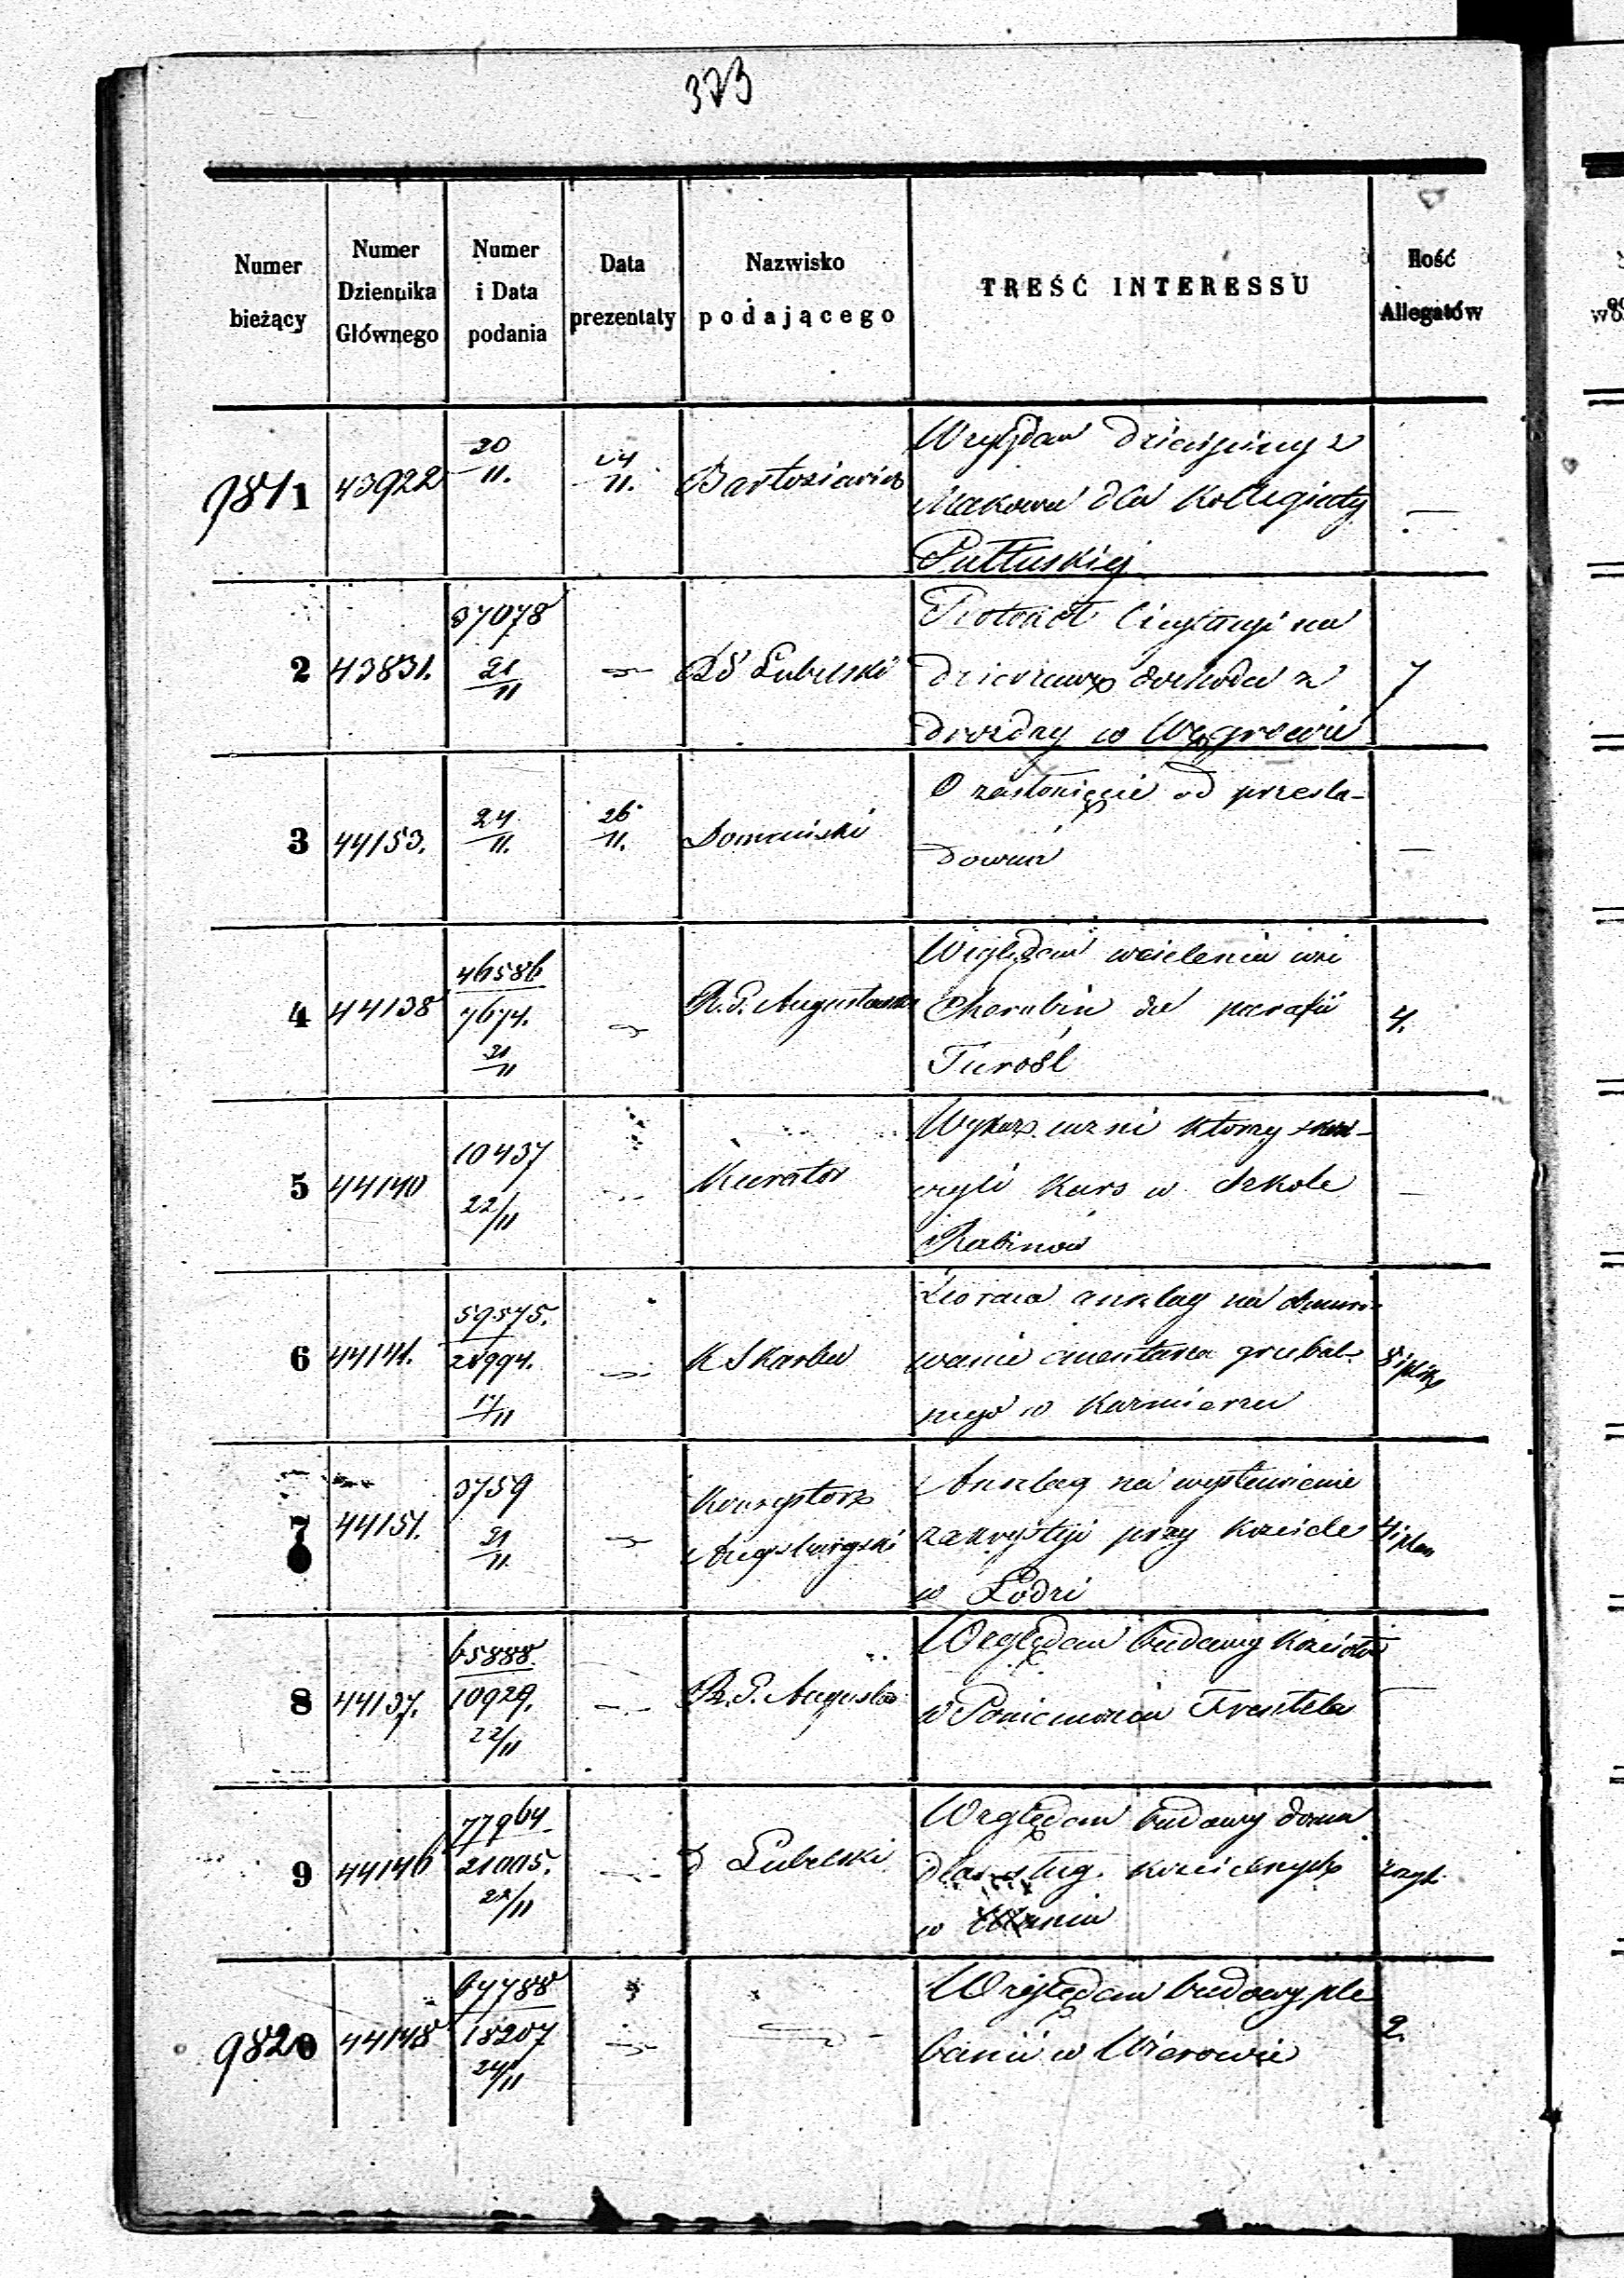 323
Numer bieżący
Numer Dziennika Głównego
Numer i Data podania
Data prezentaty
Nazwisko podającego
TREŚĆ INTERESSU
Ilość Allegatów
9811 43922 20/11. 24/11. Bartosiewicz
Względem dziesięciny z
Makowa dla Kollegiaty
Pułtuskiej
—
2 43831. 37078 21/11 — Lubelski
Protokół licytacyi na
dzierżawę dochodu z
drożdży w Węgrowie
7
3 44153. 24/11. 26/11. Domański
O zasłonięcie od prześla-
dowań
—
4 44138 46586 7674. 21/11 — R. G. Augustowski
Względem wcielenia wsi
Cherubin do parafii
Turośl
4.
5 44140 10437 22/11 Kurator
Wykaz uczni którzy skoń-
czyli kurs w Szkole
Rabinów
—
6 44141. 59575. 28994. 17/11 — K Skarbu
anszlag na obmuro-
wanie cmentarza grzebal-
nego w Kazmierzu
7 44151. 3759 21/11. — Konsystorz
Augsburgski
Anszlag na wystawienie
zakrystyi przy kościele
w Łodzi
4 i plan
8 44137. 65888. 10929. 22/11 — R. G. Augustow
Względem budowy kościoła
w Poniemoniu Frentzela
—
9 44146 77964 21005. 22/11 — Lubelski
Względem budowy domu
dla sług kościelnych
w
10 9820 44148 67788 18207 24/11 —
Względem budowy ple
banii w Wirowie
2.